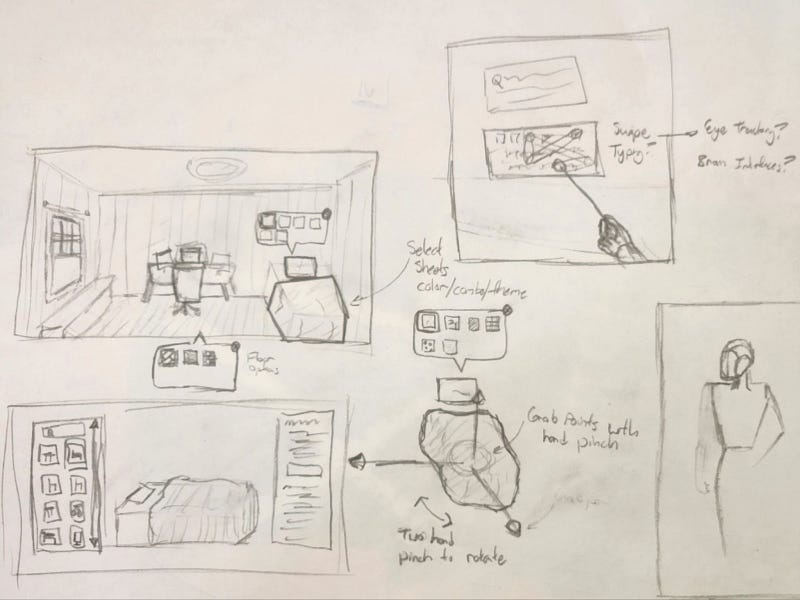 Swipe
Typing?
Eye Tracking?
Brain Interfaces?
Select
Sheets
color/combo/theme
Floor
options
Grab Points with
hand pinch
Two hand
pinch to rotate